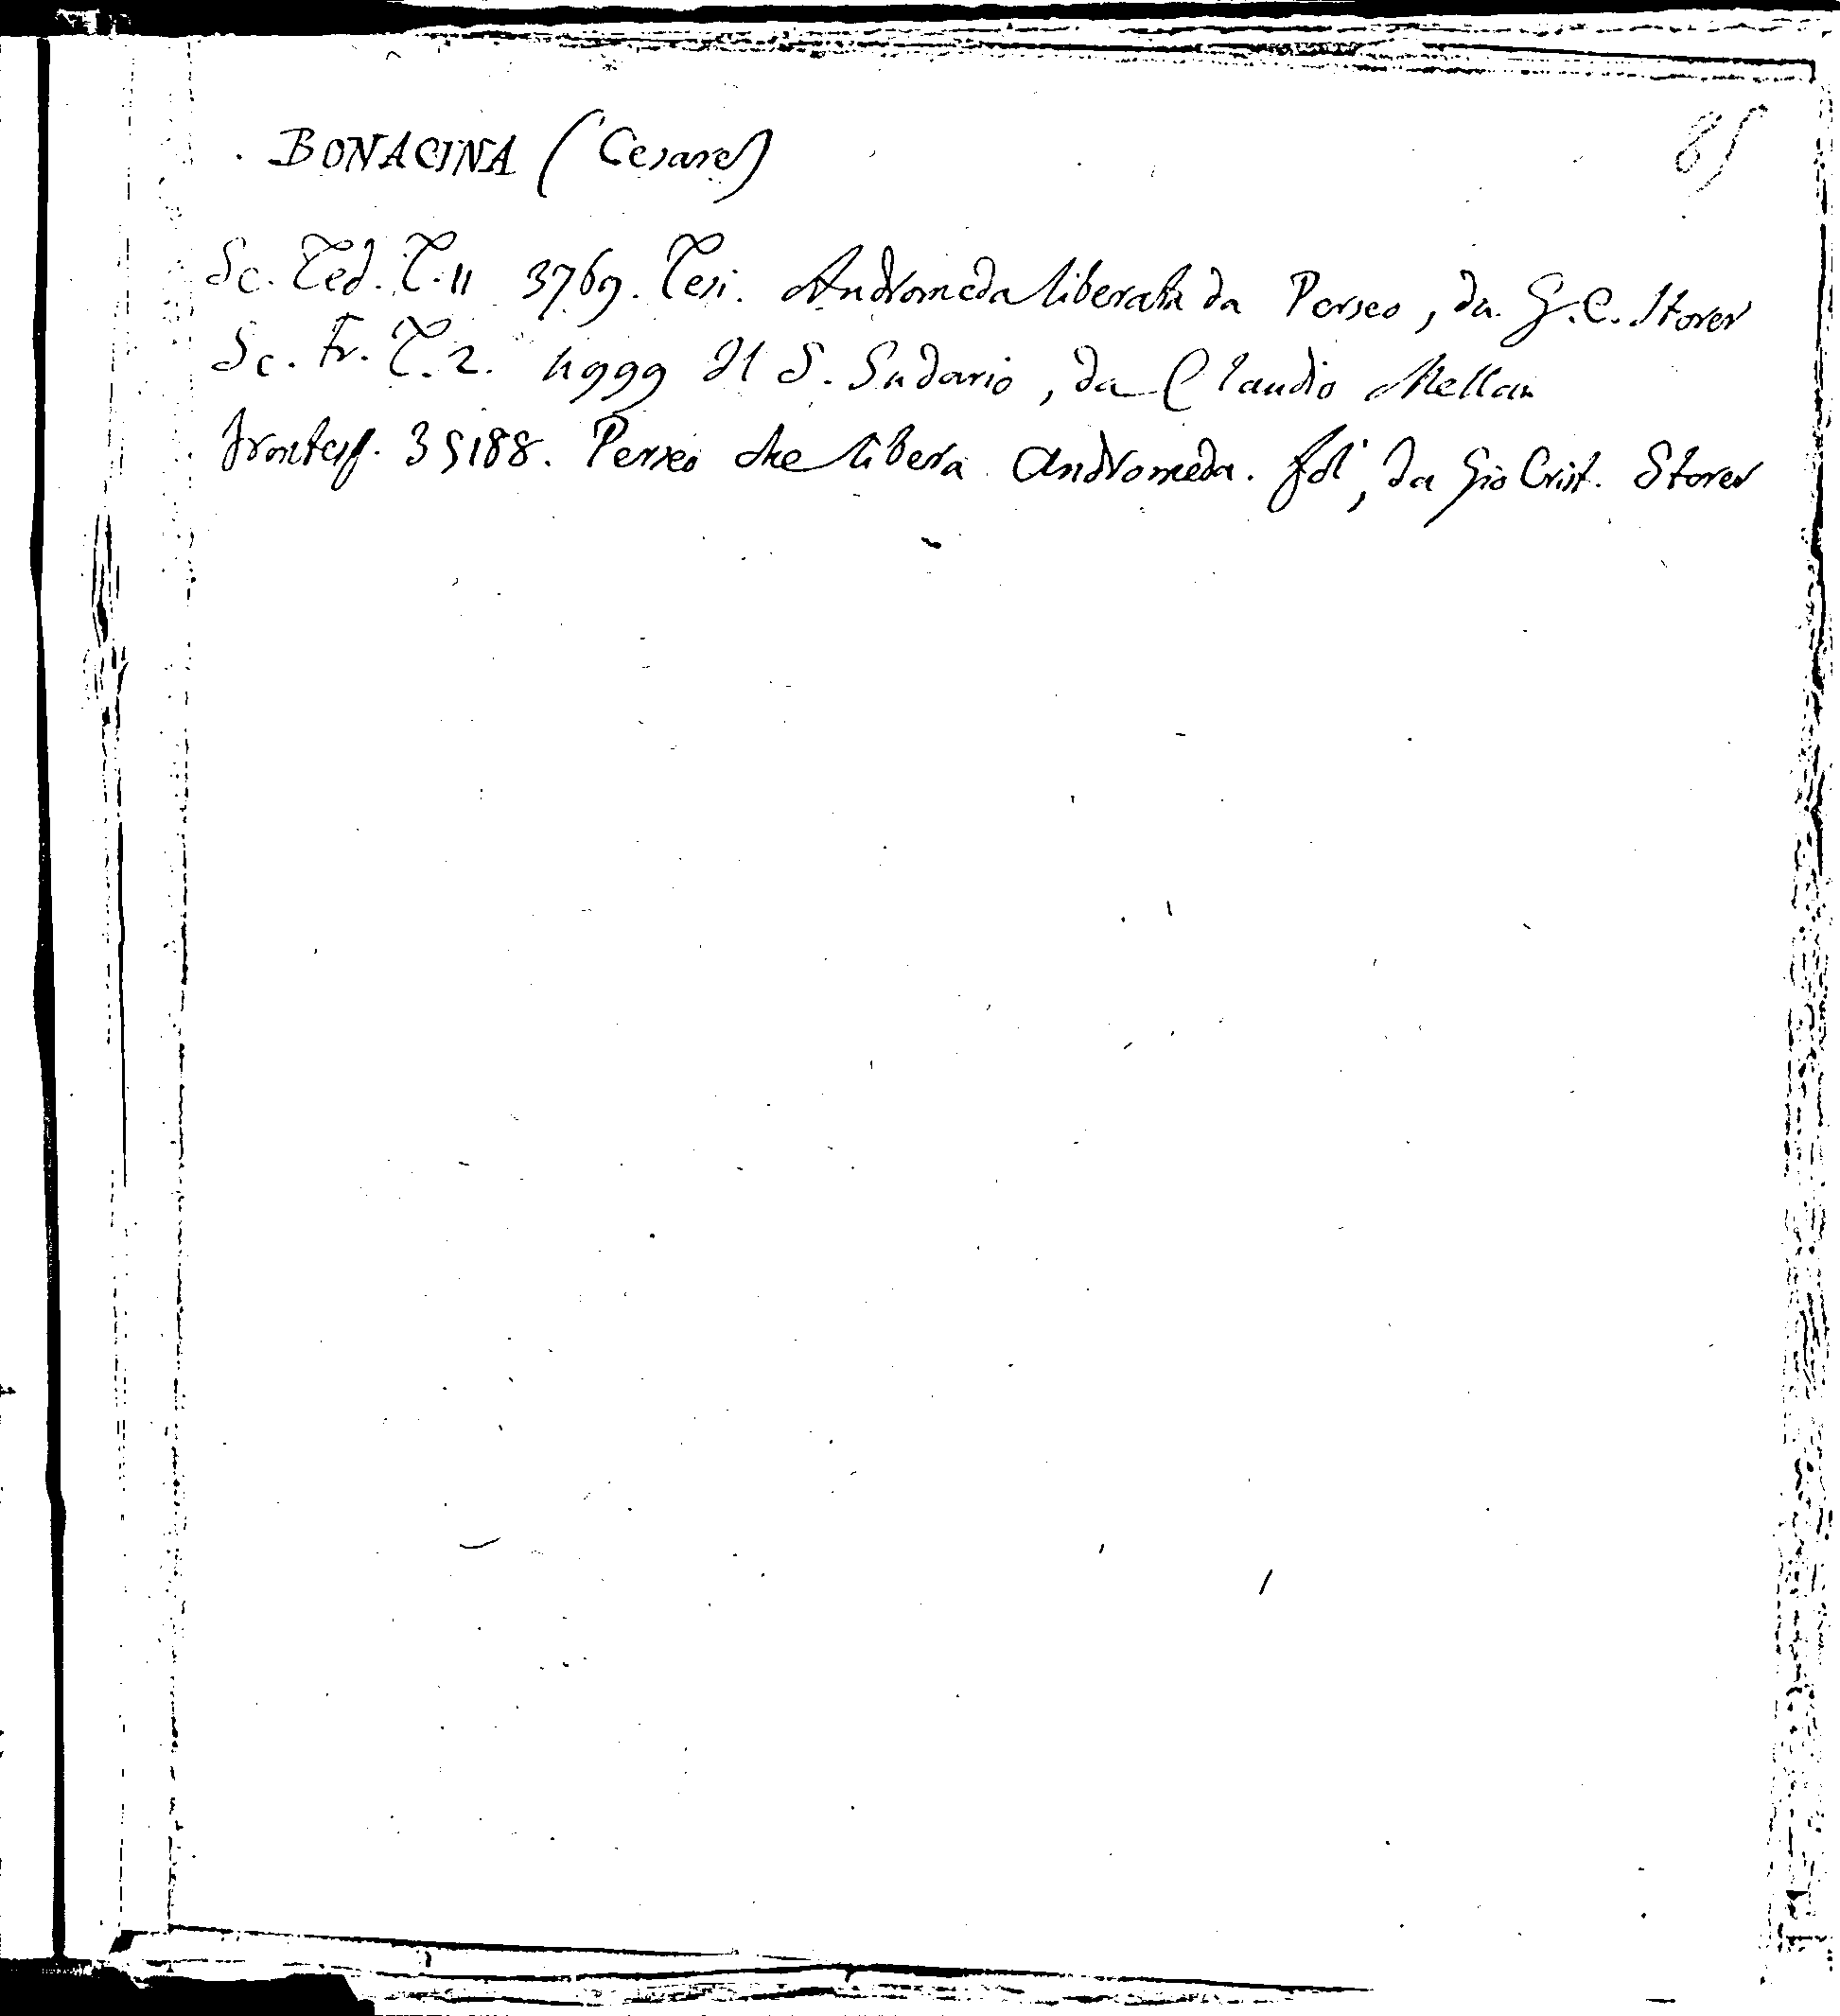 BONACINA (Cesare) 85
Sc. Ted. T. 11 3769. Tesi. Andromeda liberata da Perseo, da G. C. Storer
Sc. Fr. T. 2. 4999 Il S. Sudario, da Claudio Mellan
frontesp. 35188. Perseo che libera Andromeda. fol, da Gio Crist. Storer